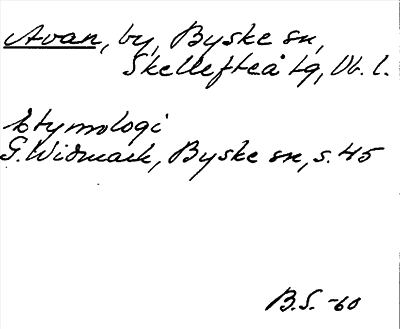 Avan, by, Byske sn,
Skellefteå tg, Vb. l.
Etymologi
G. Widmark, Byske sn, s. 45
B.S. -60